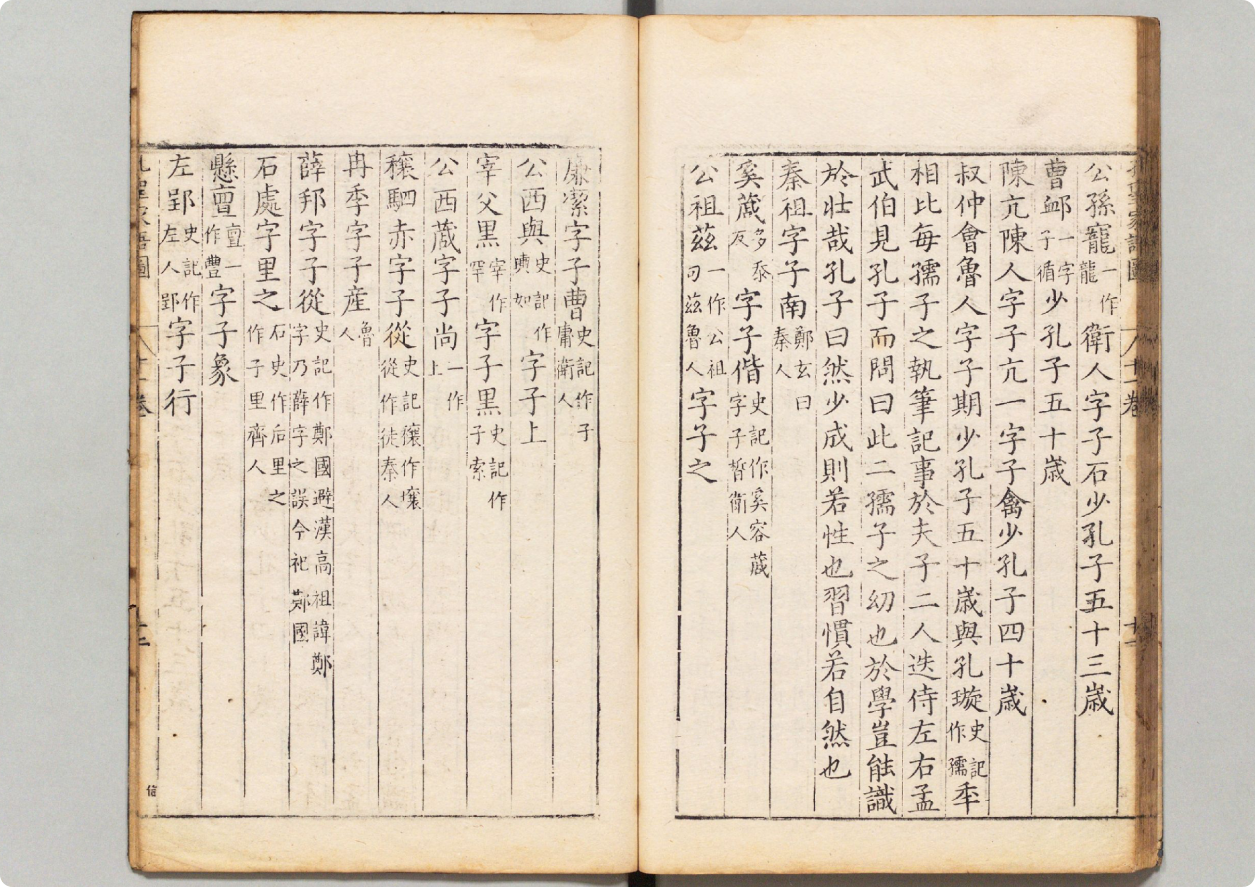 公孫寵一作龍衛人字子石少孔子五十三歳
曹䘏一字子循少孔子五十歳
陳亢陳人字子亢一字子禽少孔子四十歳
叔仲會魯人字子期少孔子五十歳與孔璇史記作孺年
相比每孺子之執筆記事於夫子二人迭侍左右孟
武伯見孔子而問曰此二孺子之幼也於學豈能識
於壯哉孔子曰然少成則若性也習慣若自然也
秦祖字子南鄭玄曰秦人
奚蒧多忝反字子偕史記作奚容蒧字子晳衛人
公祖茲一作公祖句茲魯人字子之
廉潔字子曹史記作子庸衛人
公西與史記作輿如字子上
宰父黒宰作罕字子黒史記作子索
公西蒧字子尚一作上
穰駟赤字子從史記穰作壤從作徒秦人
冉季字子産魯人
薛邦字子從史記作鄭國避漢高祖諱鄭字乃薛字之誤今祀鄭國
石處字里之石史作后里之作子里齊人
懸亶亶一作豐字子象
左郢史記作左人郢字子行
十一卷
信